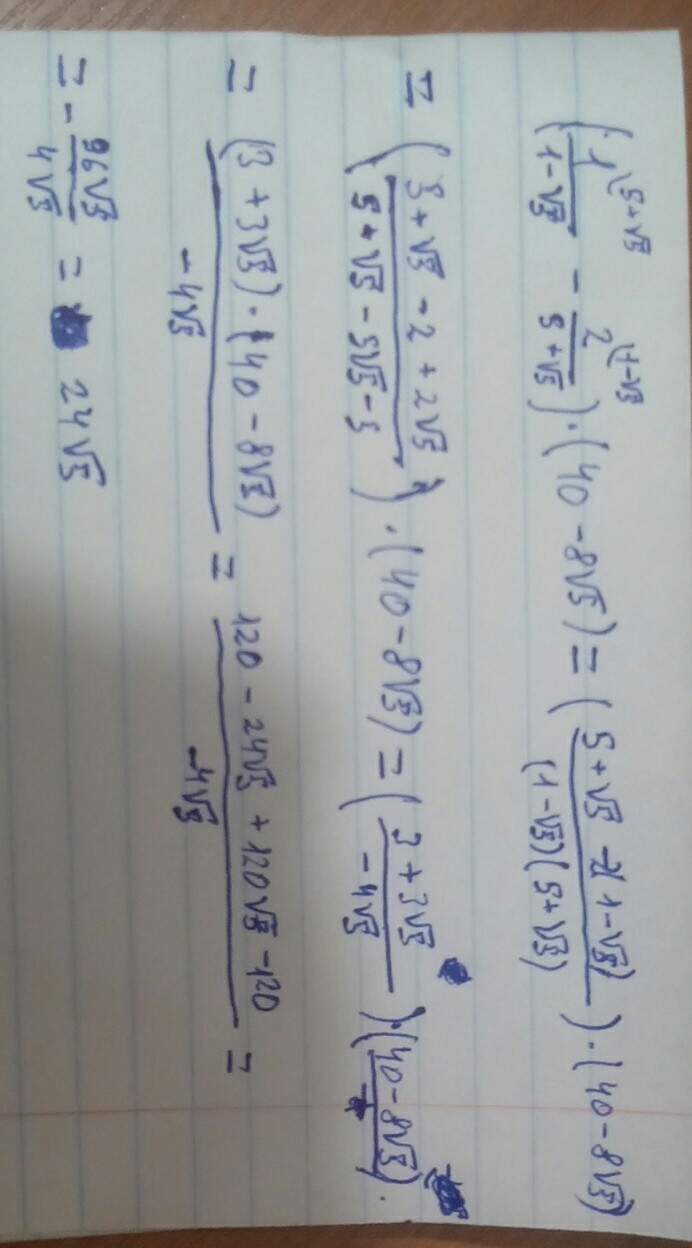 (1/(1-√5) \5+√5 - 2/(5+√5) \1-√5) · (40-8√5) = ((5+√5 -2(1-√5))/((1-√5)(5+√5))) · (40-8√5)
= ((5+√5 -2+2√5)/(5+√5-5√5-5)) · (40-8√5) = ((3+3√5)/(-4√5)) · (40-8√5)
= ((3+3√5)·(40-8√5))/(-4√5) = (120-24√5+120√5-120)/(-4√5) =
= - 96√5/4√5 = 24√5